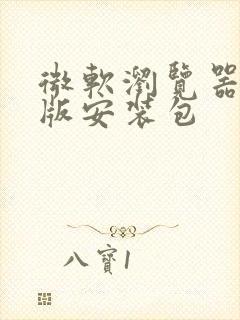 微軟瀏覽器
版安裝包
八寶1